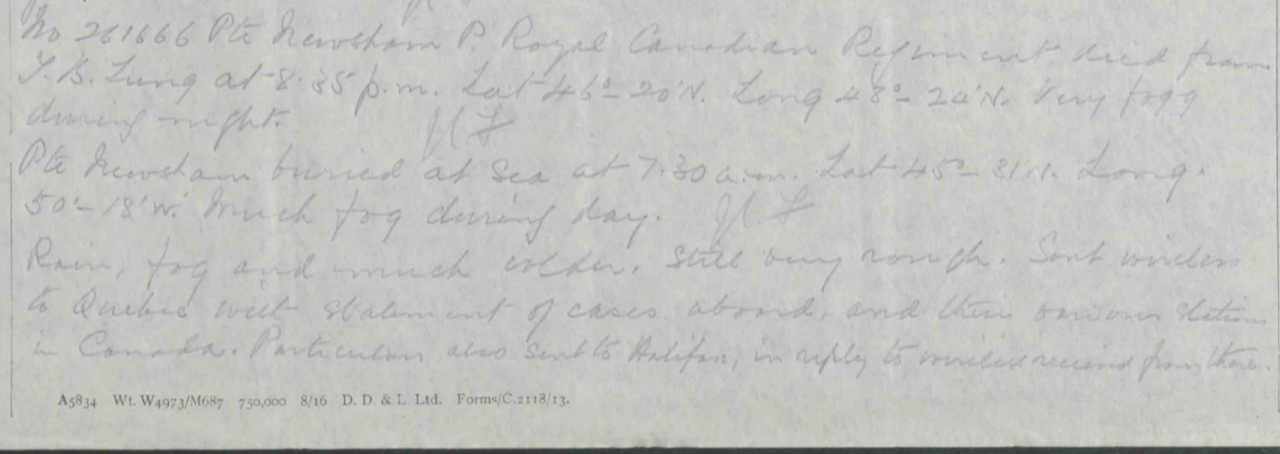 No 261666 Pte Newsham P. Royal Canadian Regiment died from
T.B. Lung at 8.35 p.m. Lat 46°-20'N. Long 48°-24'N. Very fogg
during night. JCF
Pte Newsham buried at Sea at 7.30 a.m. Lat 45°-31'N. Long.
50°-18'W. Much fog during day. JCF
Rain, fog and much colder. Still very rough. Sent wireless
to Quebec with statement of cases aboard, and their various stations
in Canada. Particulars also sent to Halifax, in reply to wireless received from there.
A5834 Wt. W4973/M687 750,000 8/16 D. D. & L. Ltd. Forms/C.2118/13.